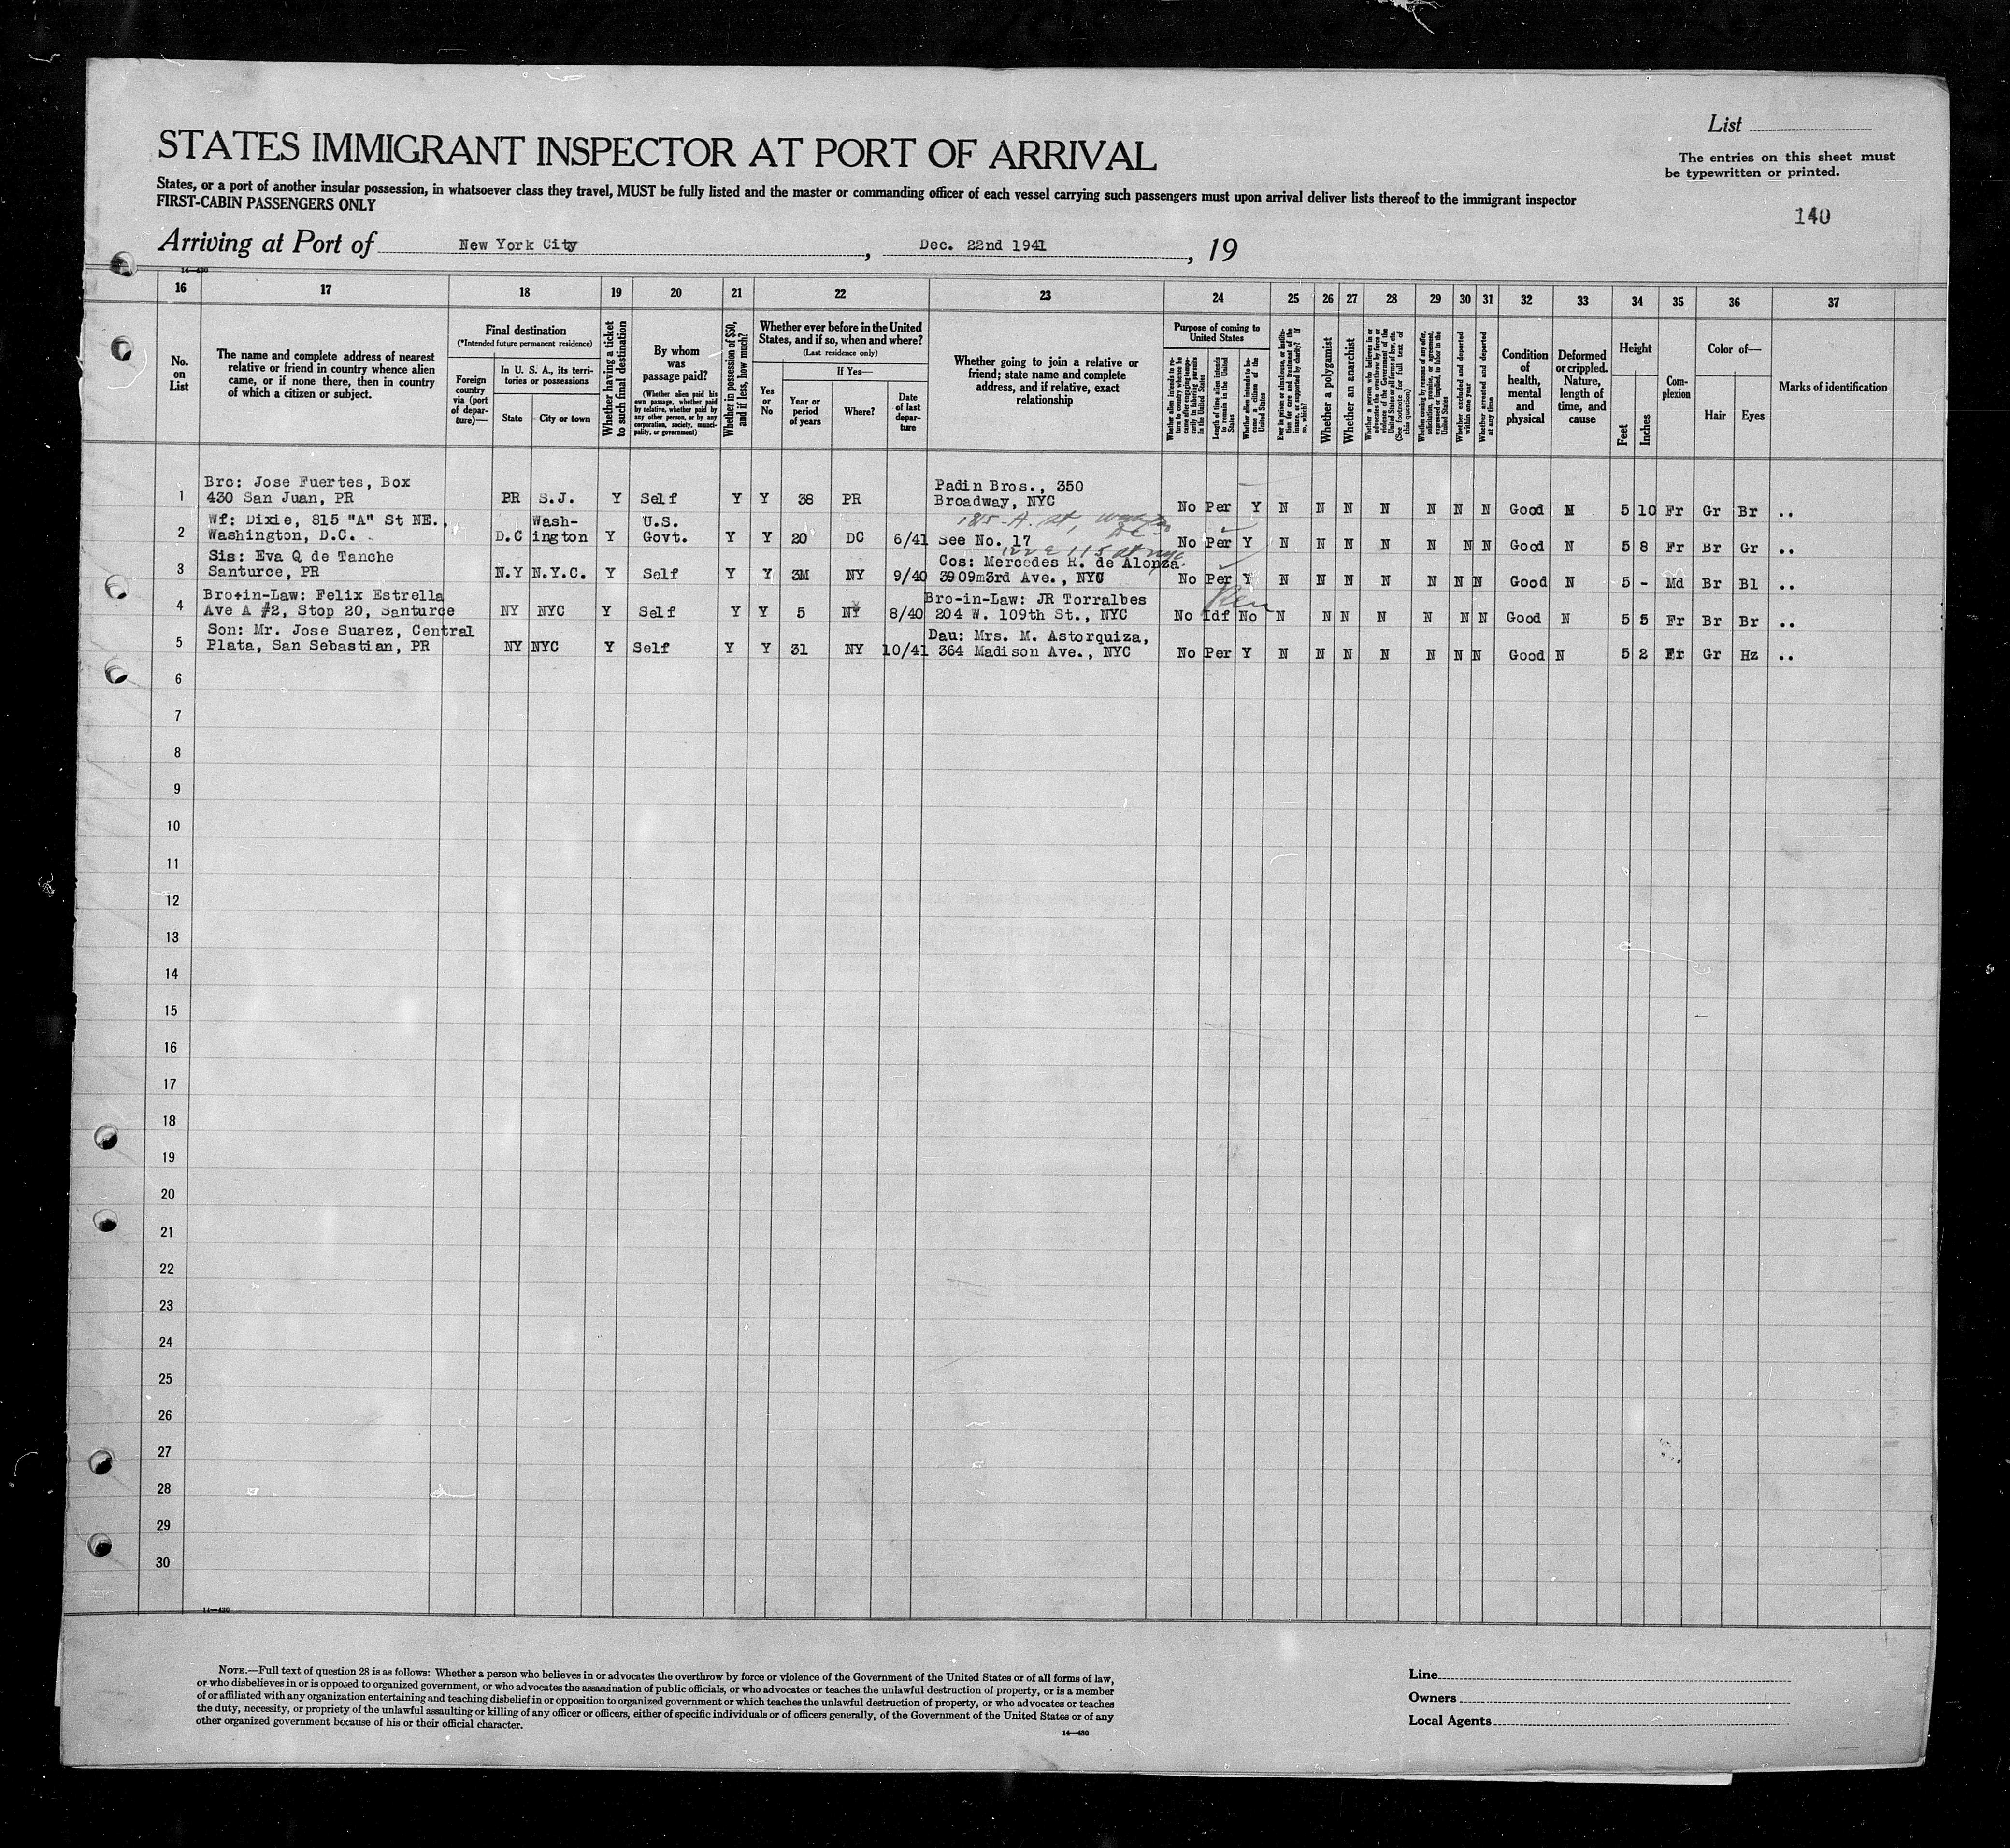 List
STATES IMMIGRANT INSPECTOR AT PORT OF ARRIVAL
The entries on this sheet must
be typewritten or printed.
States, or a port of another insular possession, in whatsoever class they travel, MUST be fully listed and the master or commanding officer of each vessel carrying such passengers must upon arrival deliver lists thereof to the immigrant inspector
FIRST-CABIN PASSENGERS ONLY
140
Arriving at Port of New York City, Dec. 22nd 1941, 19
14—430
16 17 18 19 20 21 22 23 24 25 26 27 28 29 30 31 32 33 34 35 36 37
No. on List
The name and complete address of nearest
relative or friend in country whence alien
came, or if none there, then in country
of which a citizen or subject.
Final destination
(*Intended future permanent residence)
Foreign
country
via (port
of depar-
ture)—
In U. S. A., its terri-
tories or possessions
State City or town
Whether having a ticket
to such final destination
By whom
was
passage paid?
(Whether alien paid his
own passage, whether paid
by relative, whether paid by
any other person, or by any
corporation, society, munici-
pality, or government)
Whether in possession of $50,
and if less, how much?
Whether ever before in the United
States, and if so, when and where?
(Last residence only)
Yes
or
No
If Yes—
Year or
period
of years
Where?
Date
of last
depar-
ture
Whether going to join a relative or
friend; state name and complete
address, and if relative, exact
relationship
Purpose of coming to
United States
Whether alien intends to re-
turn to country whence he
came after engaging tempo-
rarily in laboring pursuits
in the United States
Length of time alien intends
to remain in the United
States
Whether alien intends to be-
come a citizen of the
United States
Ever in prison or almshouse, or institu-
tion for care and treatment of the
insane, or supported by charity? If
so, which?
Whether a polygamist
Whether an anarchist
Whether a person who believes in or
advocates the overthrow by force or
violence of the Government of the
United States or all forms of law, etc.
(See footnote for full text of
this question)
Whether coming by reason of any offer,
solicitation, promise, or agreement,
expressed or implied, to labor in the
United States
Whether excluded and deported
within one year
Whether arrested and deported
at any time
Condition
of
health,
mental
and
physical
Deformed
or crippled.
Nature,
length of
time, and
cause
Height
Feet Inches
Com-
plexion
Color of—
Hair Eyes
Marks of identification
Bro: Jose Fuertes, Box Padin Bros., 350
1 430 San Juan, PR PR S.J. Y Self Y Y 38 PR Broadway, NYC No Per Y N N N N N N N Good N 5 10 Fr Gr Br ..
Wf: Dixie, 815 "A" St NE., Wash- U.S.
2 Washington, D.C. D.C ington Y Govt. Y Y 20 DC 6/41 See No. 17 No Per Y N N N N N N N Good N 5 8 Fr Br Gr ..
122 E 115 St NYC
Sis: Eva Q de Tanche Cos: Mercedes R. de Alonza
3 Santurce, PR N.Y N.Y.C. Y Self Y Y 3M NY 9/40 3909m3rd Ave., NYC No Per Y N N N N N N N Good N 5 - Md Br Bl ..
Bro+in-Law: Felix Estrella Bro-in-Law: JR Torralbes
4 Ave A #2, Stop 20, Santurce NY NYC Y Self Y Y 5 NY 8/40 204 W. 109th St., NYC No Idf No N N N N N N N Good N 5 5 Fr Br Br ..
Son: Mr. Jose Suarez, Central Dau: Mrs. M. Astorquiza,
5 Plata, San Sebastian, PR NY NYC Y Self Y Y 31 NY 10/41 364 Madison Ave., NYC No Per Y N N N N N N N Good N 5 2 Fr Gr Hz ..
6
7
8
9
10
11
12
13
14
15
16
17
18
19
20
21
22
23
24
25
26
27
28
29
30
14—430
NOTE.—Full text of question 28 is as follows: Whether a person who believes in or advocates the overthrow by force or violence of the Government of the United States or of all forms of law,
or who disbelieves in or is opposed to organized government, or who advocates the assassination of public officials, or who advocates or teaches the unlawful destruction of property, or is a member
of or affiliated with any organization entertaining and teaching disbelief in or opposition to organized government or which teaches the unlawful destruction of property, or who advocates or teaches
the duty, necessity, or propriety of the unlawful assaulting or killing of any officer or officers, either of specific individuals or of officers generally, of the Government of the United States or of any
other organized government because of his or their official character.
14—430
Line
Owners
Local Agents